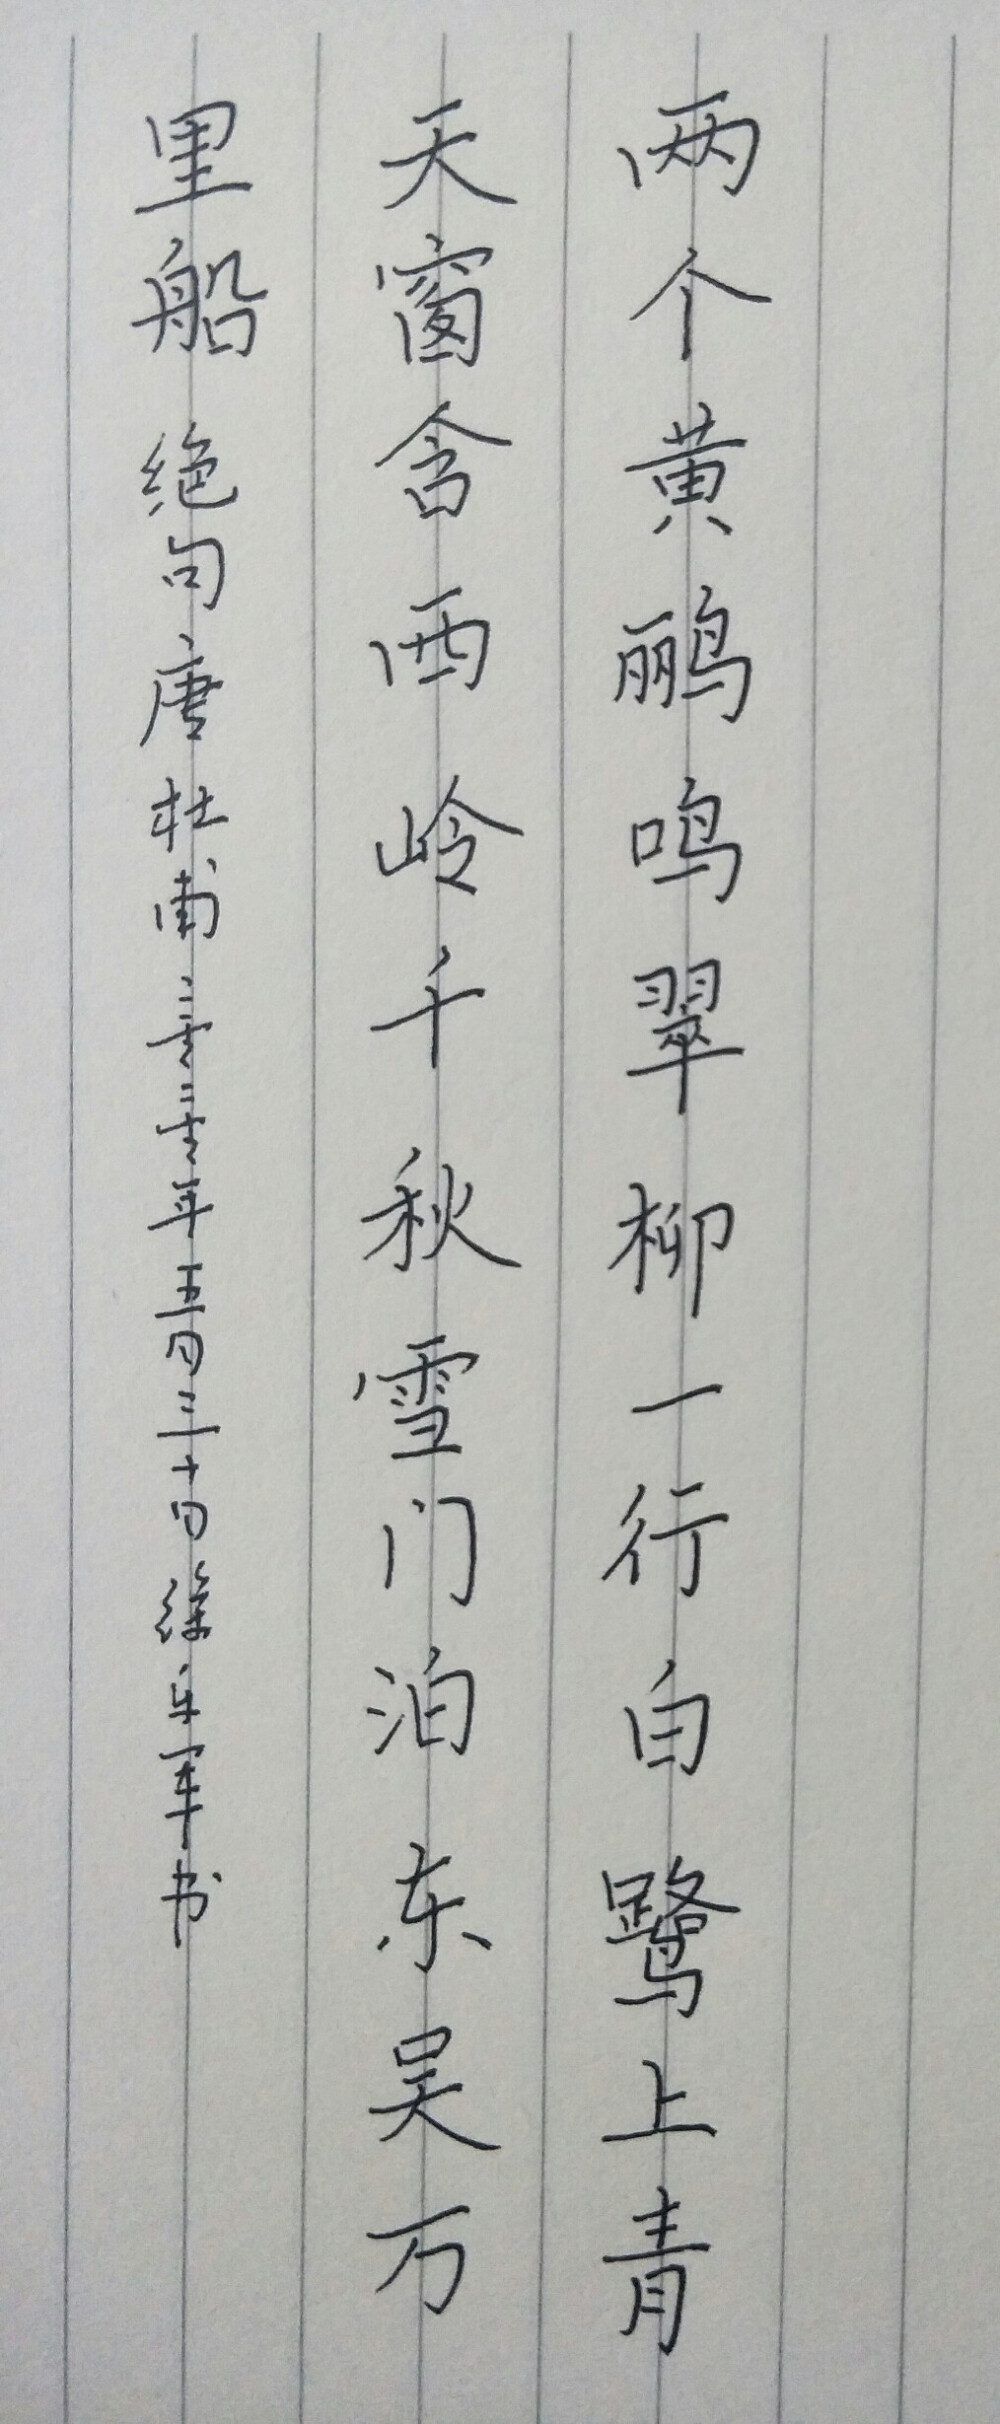 两个黄鹂鸣翠柳一行白鹭上青
天窗含西岭千秋雪门泊东吴万
里船 绝句唐杜甫二零二零年五月三十日徐军书